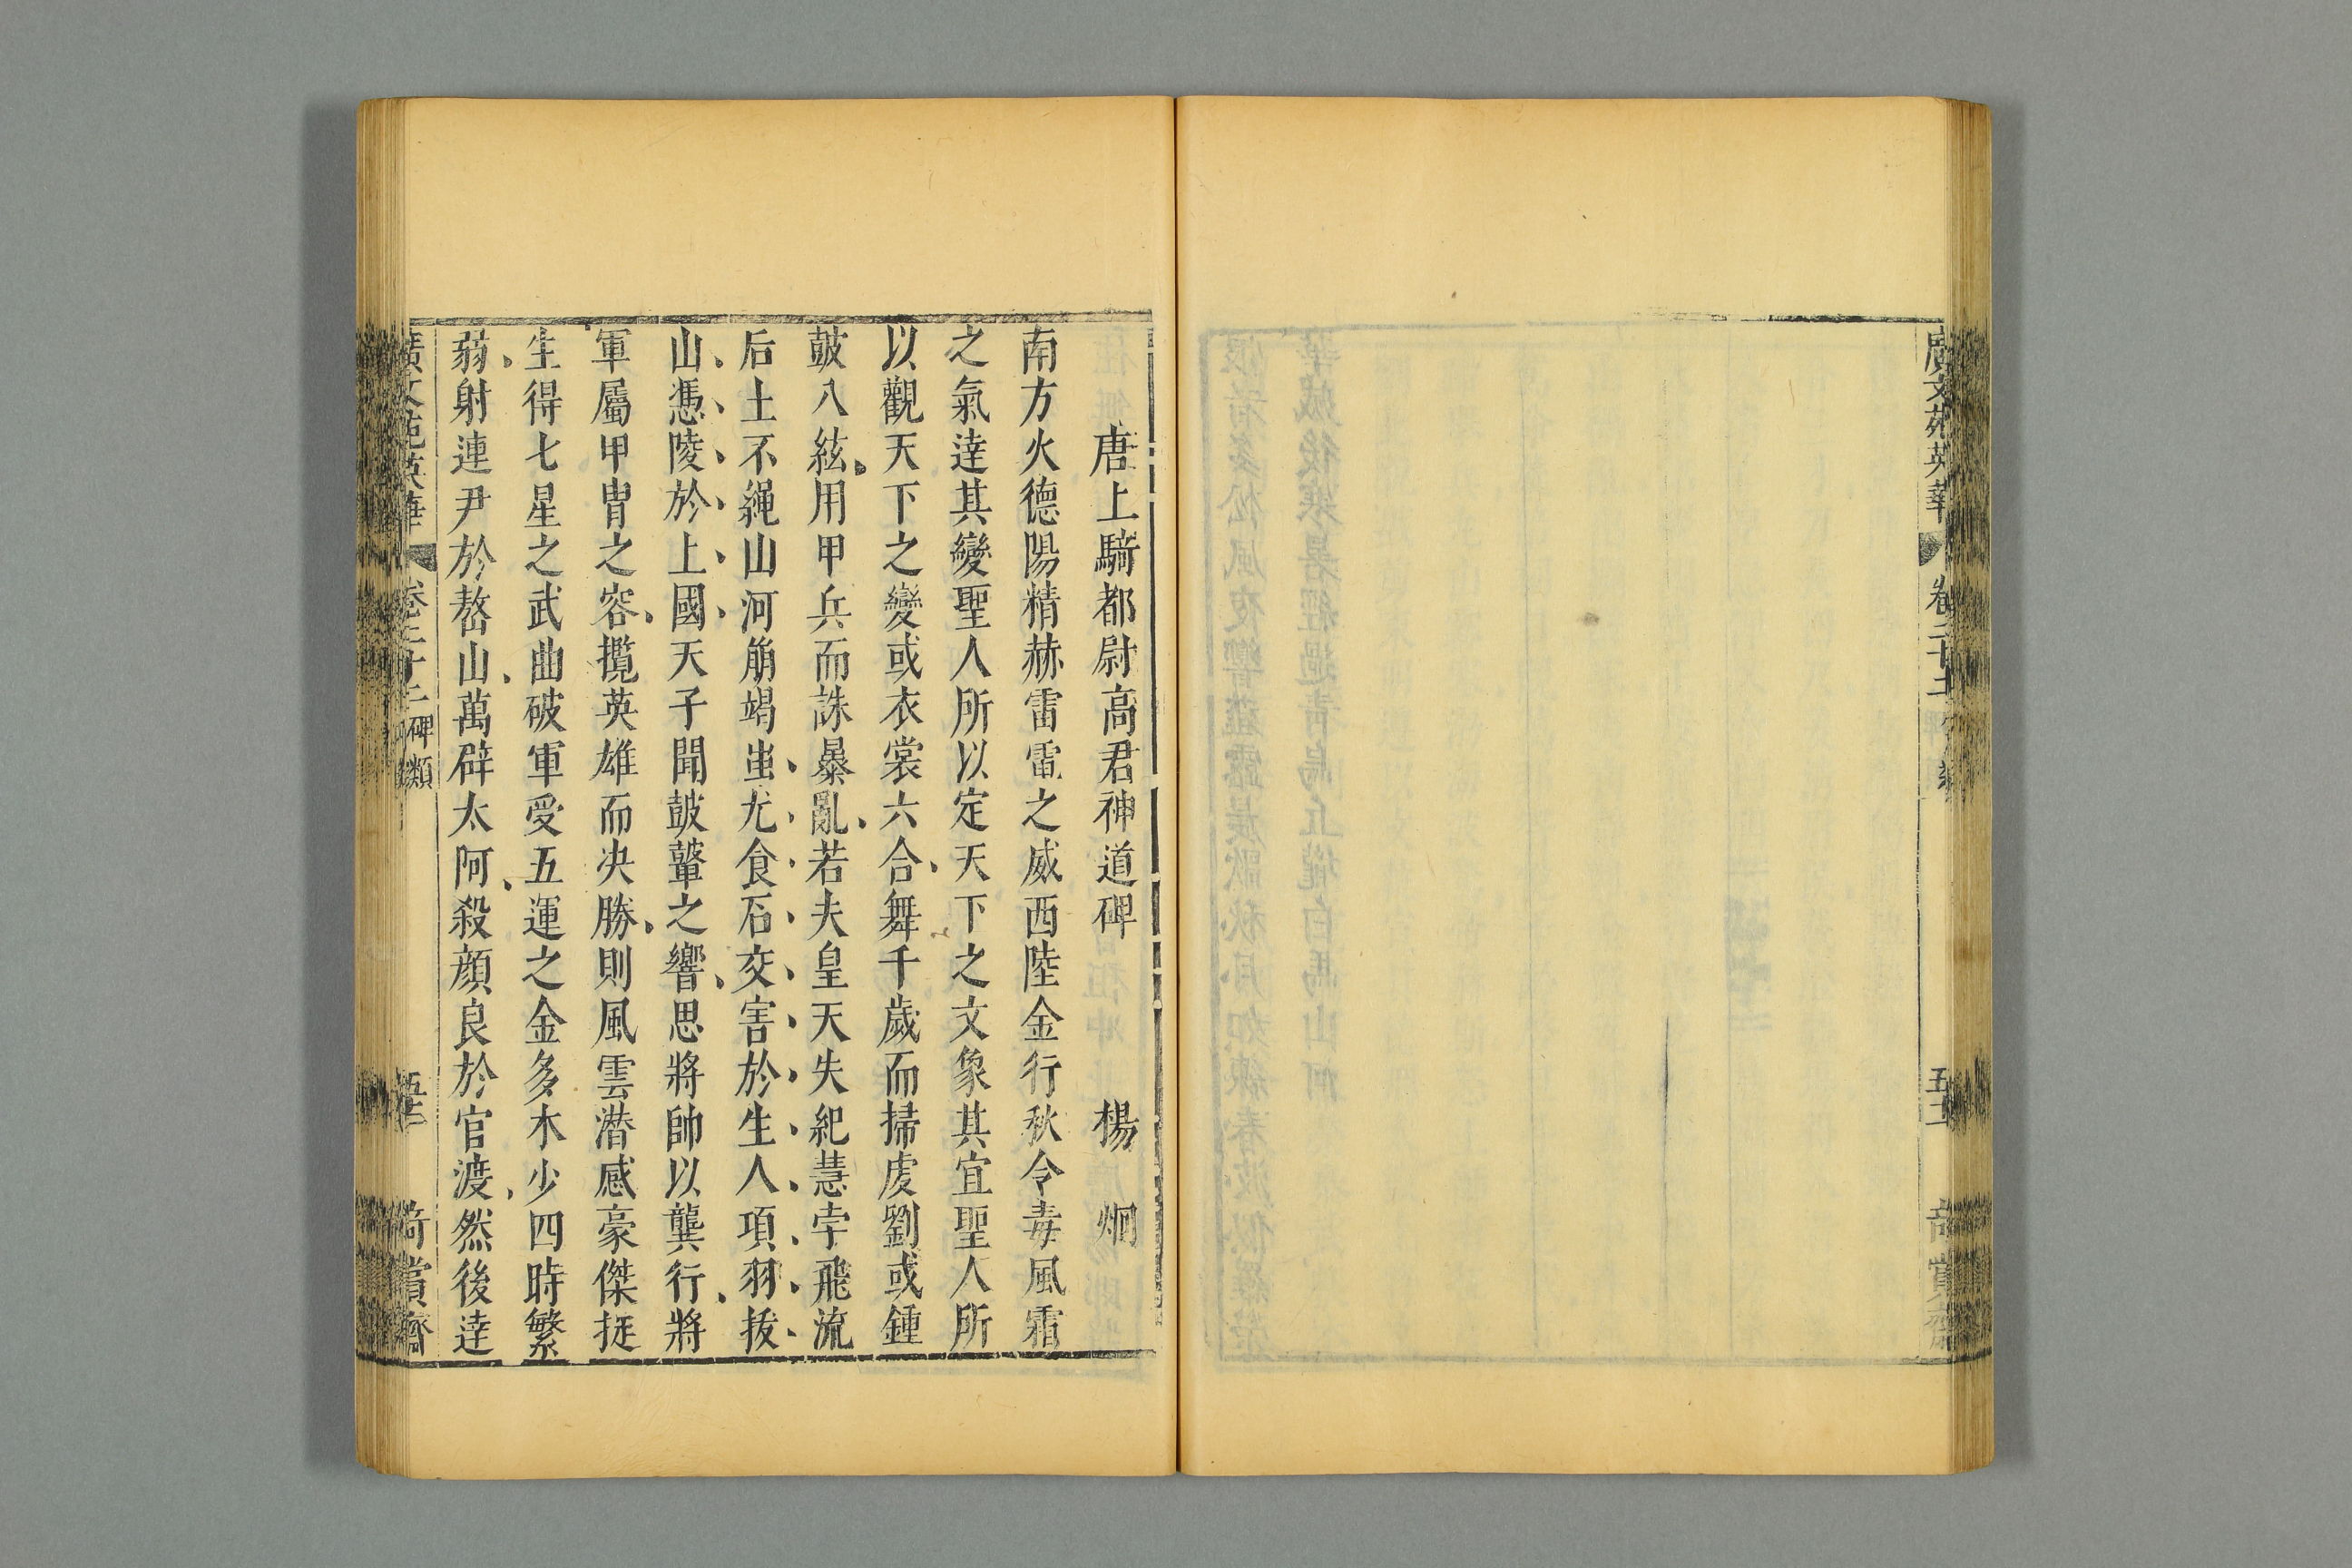 廣文苑英華
卷二十二
五十二
唐上騎都尉高君神道碑　楊　炯
南方火德陽精赫雷電之威西陸金行秋令毒風霜
之氣逹其變聖人所以定天下之文象其宜聖人所
以觀天下之變或衣裳六合舞千歲而掃虔劉或鍾
皷八絃用甲兵而誅暴亂若夫皇天失紀慧孛飛流
后土不繩山河崩竭蚩尤食石交害於生人項羽拔
山憑陵於上國天子聞皷鼙之響思將帥以龔行將
軍屬甲冑之容攬英雄而决勝則風雲潜感豪傑挺
生得七星之武曲破軍受五運之金多木少四時繁
蒻射連尹於嶅山萬辟太阿殺顔良於官渡然後逹
廣文苑英華
卷二十二　碑類